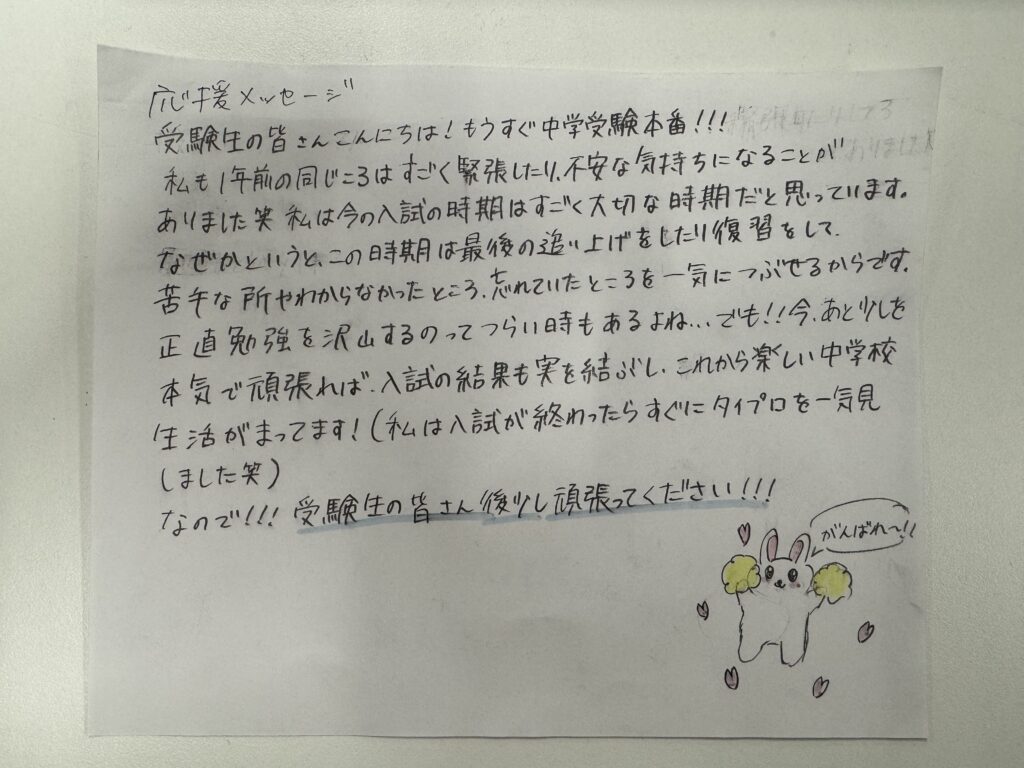 応援メッセージ
受験生の皆さんこんにちは！もうすぐ中学受験本番！！！
私も1年前の同じころはすごく緊張したり、不安な気持ちになることが
ありました笑 私は今の入試の時期はすごく大切な時期だと思っています。
なぜかというと、この時期は最後の追い上げをしたり復習をして、
苦手な所やわからなかったところ、忘れていたところを一気につぶせるからです。
正直勉強を沢山するのってつらい時もあるよね...でも！！今、あと少しを
本気で頑張れば、入試の結果も実を結ぶし、これから楽しい中学校
生活がまってます！（私は入試が終わったらすぐにタイプロを一気見
しました笑）
なので！！！受験生の皆さん後少し頑張ってください！！！
がんばれ〜！！